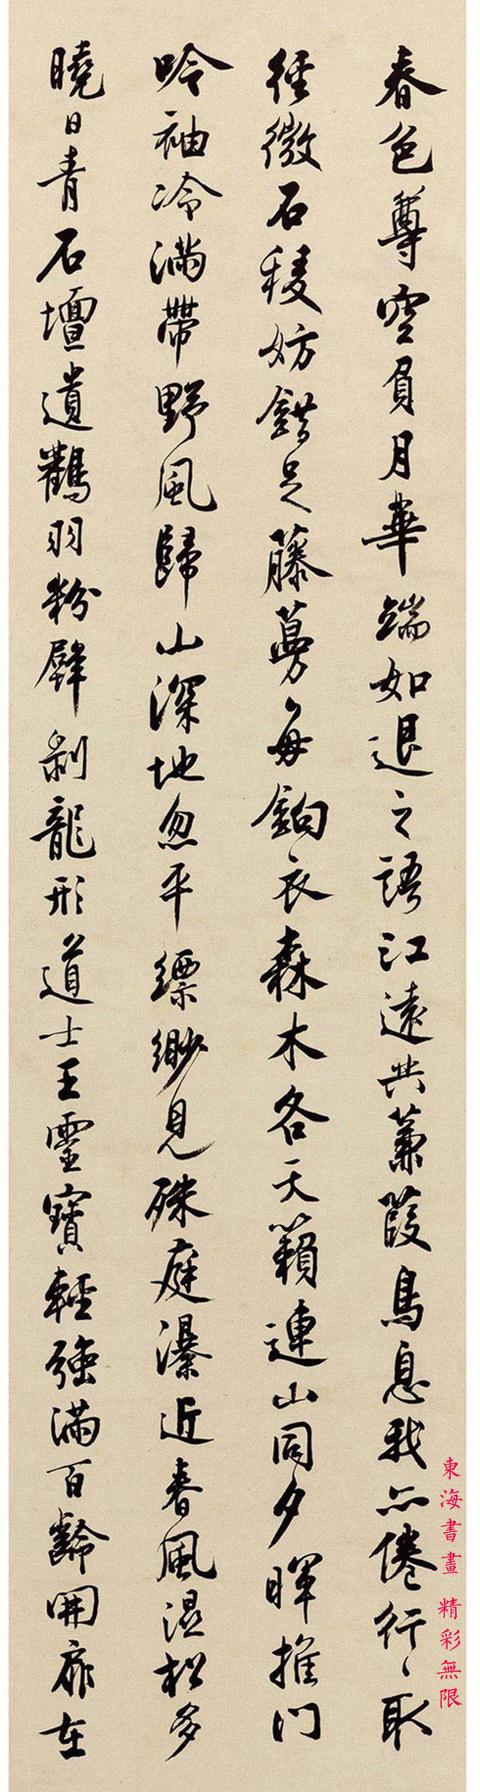 春色尊空負月華端如退之語江遠共蒹葭鳥息我亦倦行〻取
徑微石稜妨錯足藤蔓每鉤衣森木各天籟連山同夕暉推門
吟袖冷滿帶野風歸山深地忽平縹緲見殊庭瀑近春風濕松多
曉日青石壇遺鸛羽粉壁剝龍形道士王靈寶輕強滿百齡開扉在
東海書畫 精彩無限